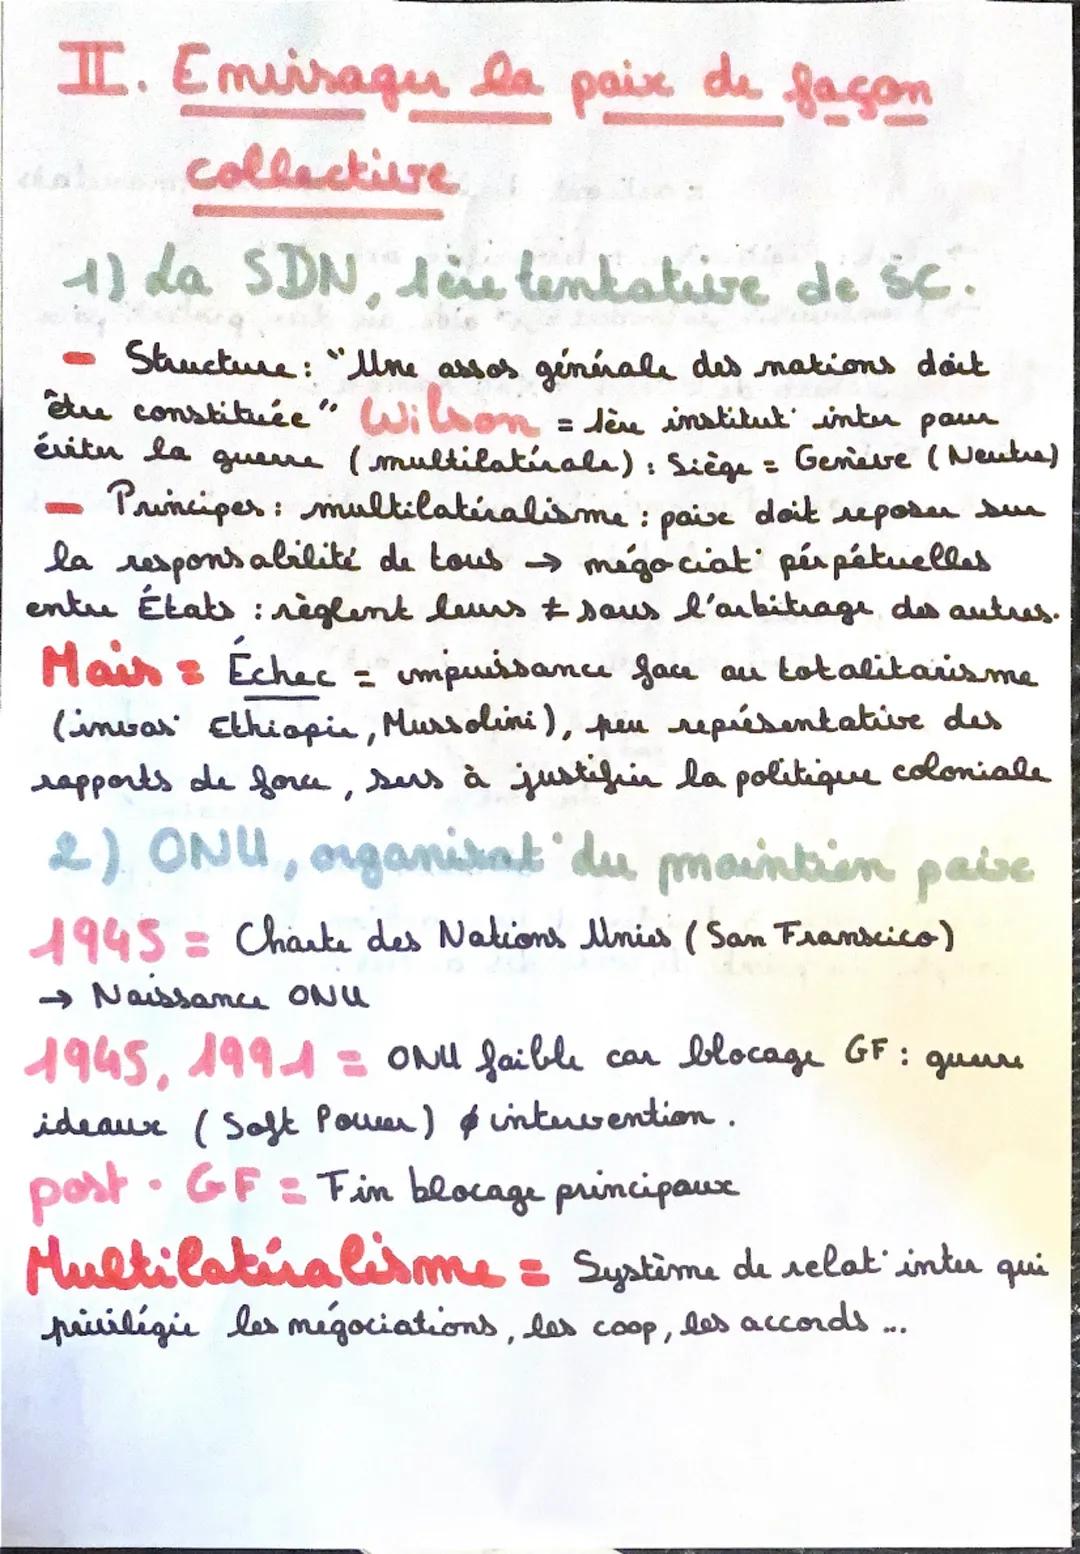 II. Envisager la paix de façon
collective
1) La SDN, 1ère tentative de SC.
- Structure : "Une assos générale des nations doit
être constituée" Wilson = 1ère institut° inter pour
éviter la guerre (multilatérale) : Siège = Genève (Neutre)
- Principes : multilatéralisme : paix doit reposer sur
la responsabilité de tous → négociat° perpétuelles
entre États : règlent leurs ≠ sous l'arbitrage des autres.
Mais = Échec = impuissance face au totalitarisme
(invas° Ethiopie, Mussolini), peu représentative des
rapports de force, sers à justifier la politique coloniale
2) ONU, organisat° du maintien paix
1945 = Charte des Nations Unies (San Franscico)
→ Naissance ONU
1945, 1991 = ONU faible car blocage GF : guerre
ideaux (Soft Power) ∅ intervention.
post-GF = Fin blocage principaux
Multilatéralisme = Système de relat° inter qui
privilégie les négociations, les coop, les accords ...